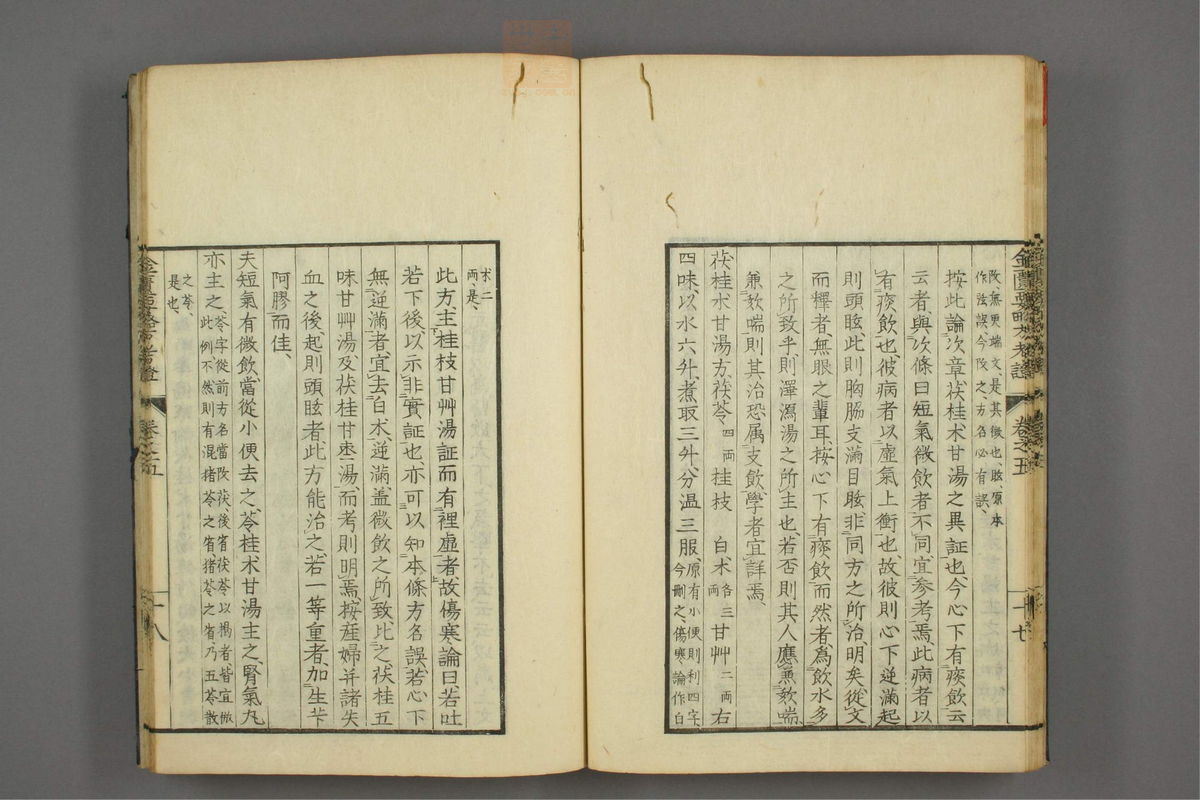 改、無更端文、是其徵也、眩、原本
作弦誤、今改之、方名必有誤、
按此論、次章茯桂朮甘湯之異証也、今心下有痰飲云
云者、與次條曰短氣微飲者、不同、宜參考焉、此病者以
有痰飲也、彼病者以虛氣上衝也、故彼則心下逆滿起
則頭眩、此則胸脇支滿目眩、非同方之所治明矣、從文
而擇者、無眼之輩耳、按心下有痰飲而然者、爲飲水多
之所致乎、則澤瀉湯之所主也、若否則其人應兼欬喘、
兼欬喘則其治恐屬支飲、學者宜詳焉、
茯桂朮甘湯方、茯苓四兩桂枝 白朮各三兩甘艸二兩右
四味、以水六升、煮取三升、分溫三服、原有小便則利四字、
今刪之、傷寒論作白
朮二
兩、是、
此方主桂枝甘艸湯証而有裡虛者、故傷寒論曰、若吐
若下後、以示非實証也、亦可以知本條方名誤、若心下
無逆滿者、宜去白朮、逆滿、盖微飲之所致、比之茯桂五
味甘艸湯及茯桂甘棗湯、而考則明焉、按産婦并諸失
血之後、起則頭眩者、此方能治之、若一等重者、加生芐
阿膠而佳、
夫短氣有微飲、當從小便去之、苓桂朮甘湯主之、腎氣丸
亦主之、苓字從前方名當改茯、後省茯苓以揭者、皆宜倣
此例、不然則有混猪苓之省、猪苓之省、乃五苓散
之苓、
是也、
金匱要略方考證 卷之五 十七
金匱要略方考證 卷之五 十八